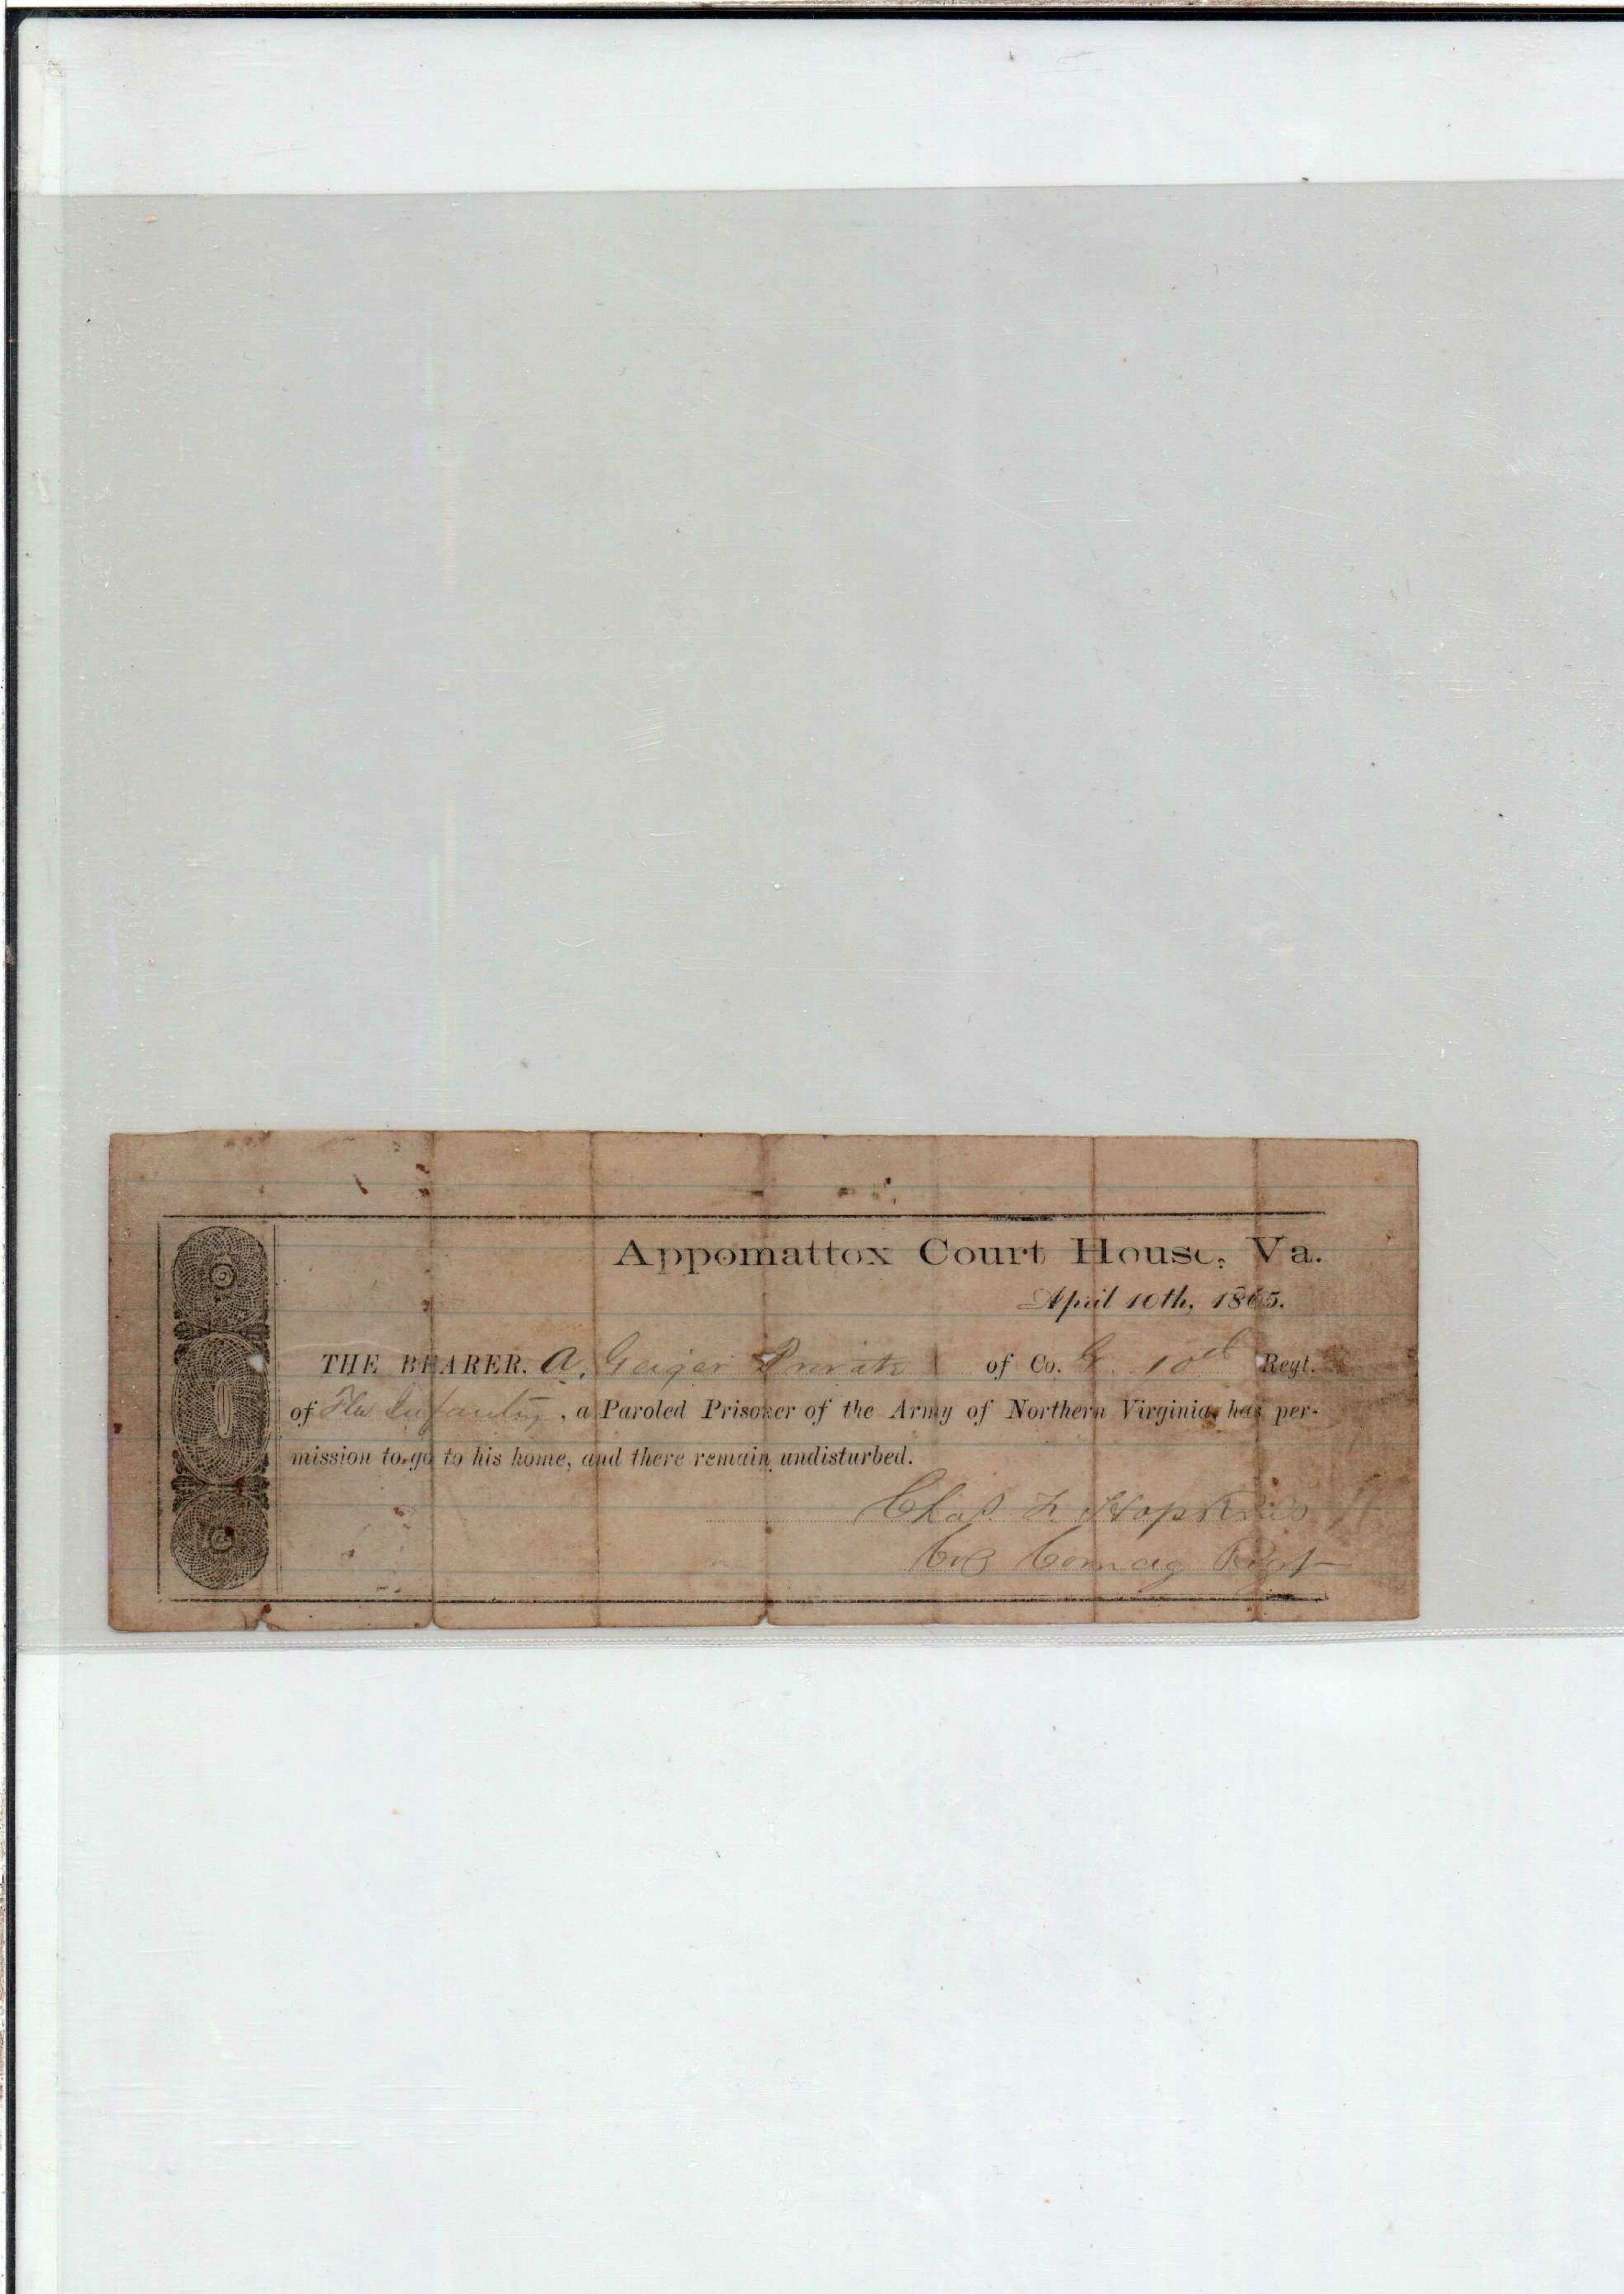 Appomattox Court House, Va.
April 10th, 1865.
THE BEARER, A. Geiger Private of Co. 10th Regt.
of Fla Infantry, a Paroled Prisoner of the Army of Northern Virginia, has per-
mission to go to his home, and there remain undisturbed.
Chas. F. Hopkins
Comdg Regt